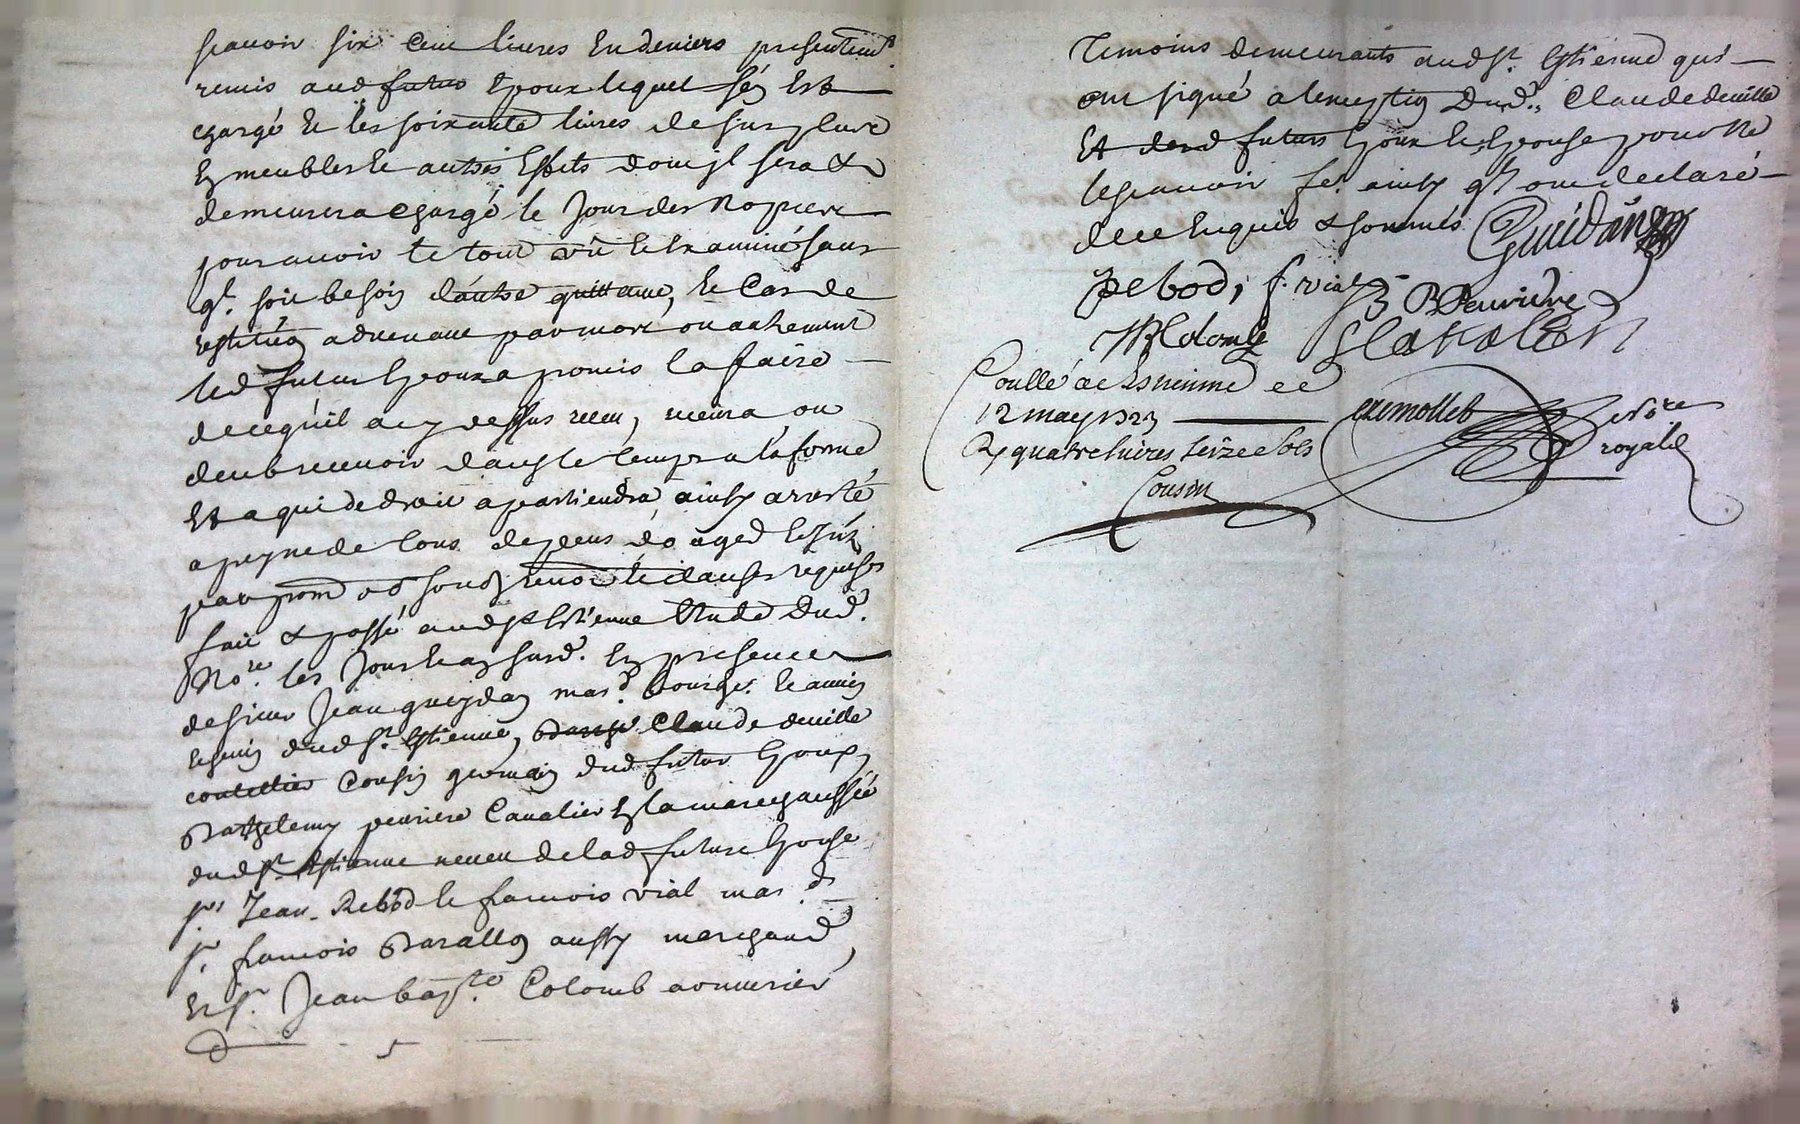 scavoir six cent livres en deniers presentem.t
remis aud futur Epoux lequel sen est
chargé et les soixante livres de surplus
En meubles et autres Effets dont jl sera &
demeurera chargé le Jour des Nopces
pour avoir le tout vû et Examiné sans
q.l soit besoin d'autre quittance, le Cas de
restitu͠on advenant par mort ou autrement
led futur Epoux a promis la faire
de ce quil a cy dessus receu, recevra ou
deub recevoir dans le temps a la forme
Et a qui de droit apartiendra, ainsy arresté
a peyne de tous depens
par prom renon et clauses requises
fait & passé aud S.t Estienne Etude dud.
No.re les Jour et an susd. En presence
de sieur Jean gueydan mar.d bourge.
dud S.t Estienne, Claude deville
coutellier Cousin germain dud futur Epoux,
Barthelemy peuriere Cavalier En la marechaussée
dud S.t Estienne neveu de lad future Epouse
s.rs Jean Rebod et francois vial mar.ds
s.r francois Barallon aussy marchand,
Et s.r Jean bap.te Colomb armurier
Temoins demeurants aud S.t Estienne qui
ont signé a lexception Dud. Claude deville
Et desd futurs Epoux et Epouse pour ne
le scavoir f.e ainsy q.ls ont declaré
de ce Enquis & sommés Gueidan
Rebod, f. vial B Peurière
JB Colomb
Conllé a St Estienne ce
12 may 1723
R quatre livres seize sols
Cousin
no.re
royal